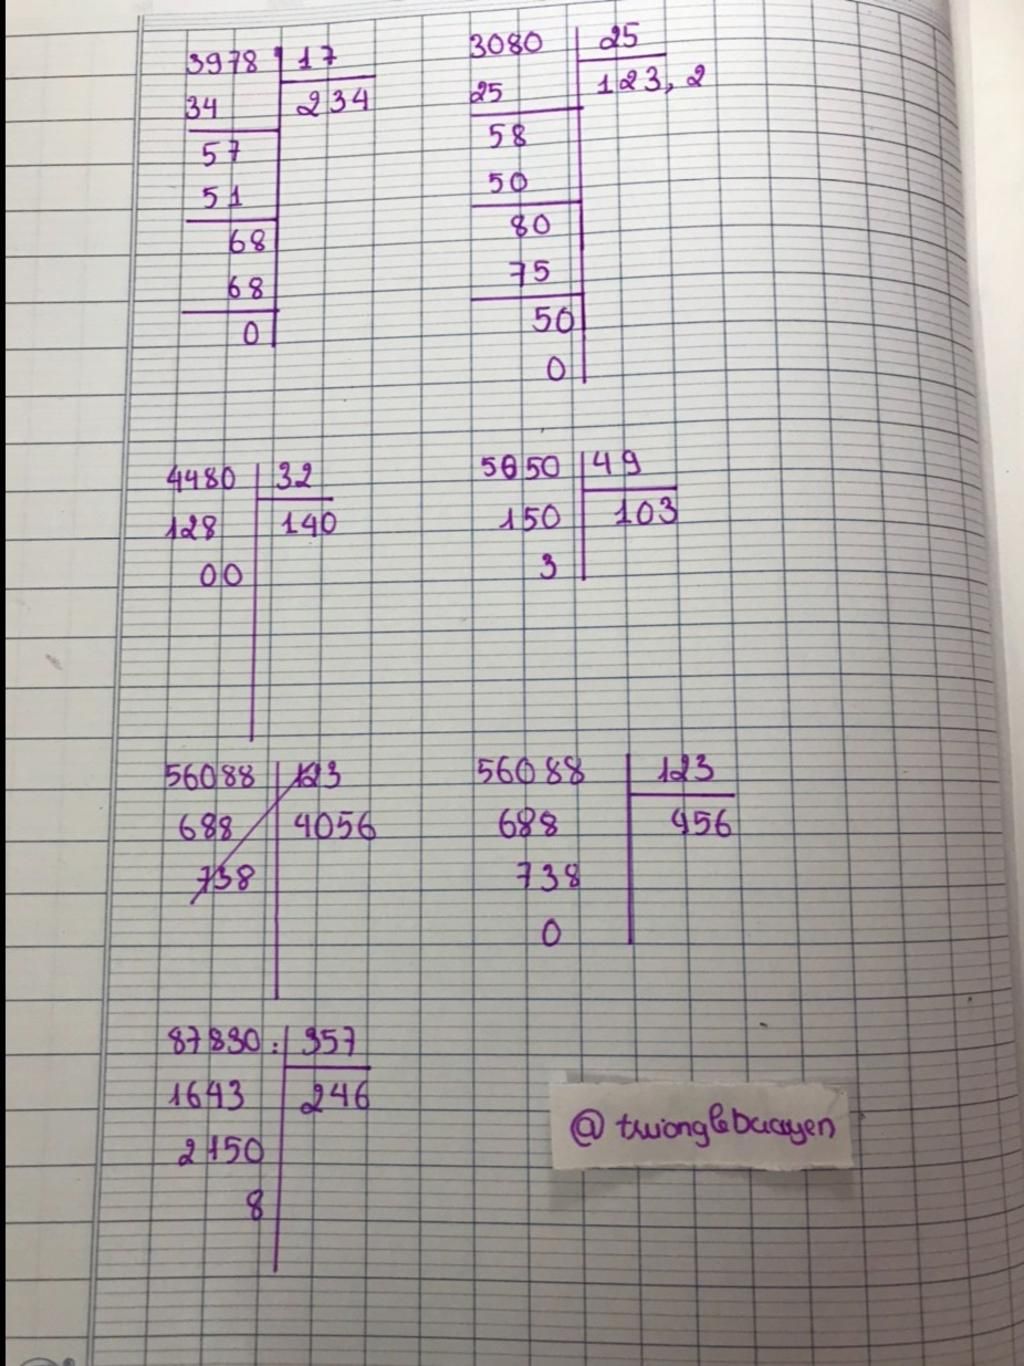 3978 17
34 234
57
51
68
68
0
3080 25
25 123,2
58
50
80
75
50
0
4480 32
128 140
00
5050 49
150 103
3
56088 123
688 4056
738
56088 123
688 456
738
0
87830: 357
1643 246
2150
8